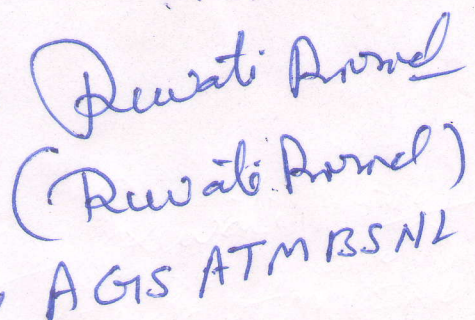 Rewati Prasad
(Rewati Prasad)
AGS ATM BSNL